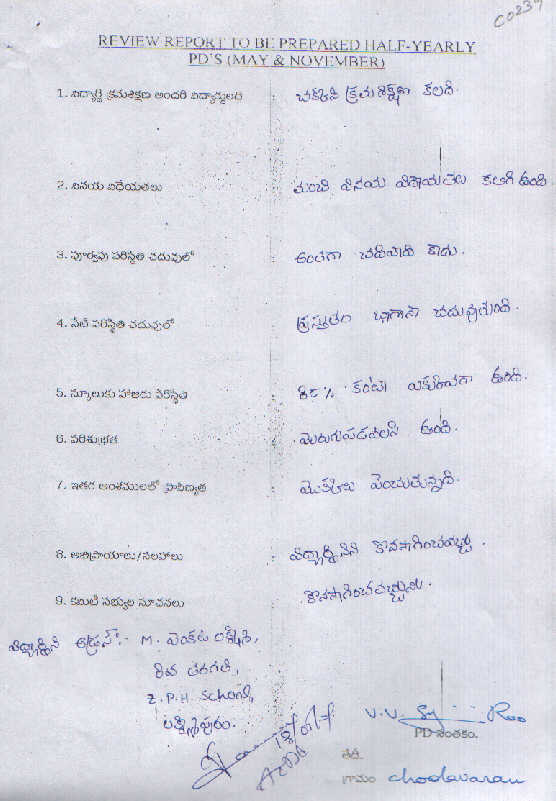 C0239
REVIEW REPORT TO BE PREPARED HALF-YEARLY
PD'S (MAY & NOVEMBER)
1. విద్యార్థి క్రమశిక్షణ అందరి విద్యార్థులలో : చక్కని క్రమశిక్షణ కలది.
2. వినయ విధేయతలు : మంచి వినయ విధేయతలు కలిగి ఉంది
3. పూర్వపు పరిస్థితి చదువులో : అంతగా చదివేది కాదు.
4. నేటి పరిస్థితి చదువులో : ప్రస్తుతం బాగానే చదువుతుంది.
5. స్కూలుకు హాజరు పరిస్థితి : 80% కంటె ఎక్కువగా ఉంది.
6. పరిశుభ్రత : మెరుగుపడవలసి ఉంది.
7. ఇతర అంశములలో ప్రావిణ్యత : మొక్కలు పెంచుతున్నది.
8. అభిప్రాయాలు/సలహాలు : విద్యార్థినిని కొనసాగించవచ్చు.
9. కమిటీ సభ్యుల సూచనలు : కొనసాగించవచ్చును.
విద్యార్థిని అడ్రస్:- M. వెంకట లక్ష్మి,
6వ తరగతి,
Z.P.H. School,
లక్ష్మీపురం.
V.V. Rao
PD సంతకం.
తేది
గ్రామం chodavaram